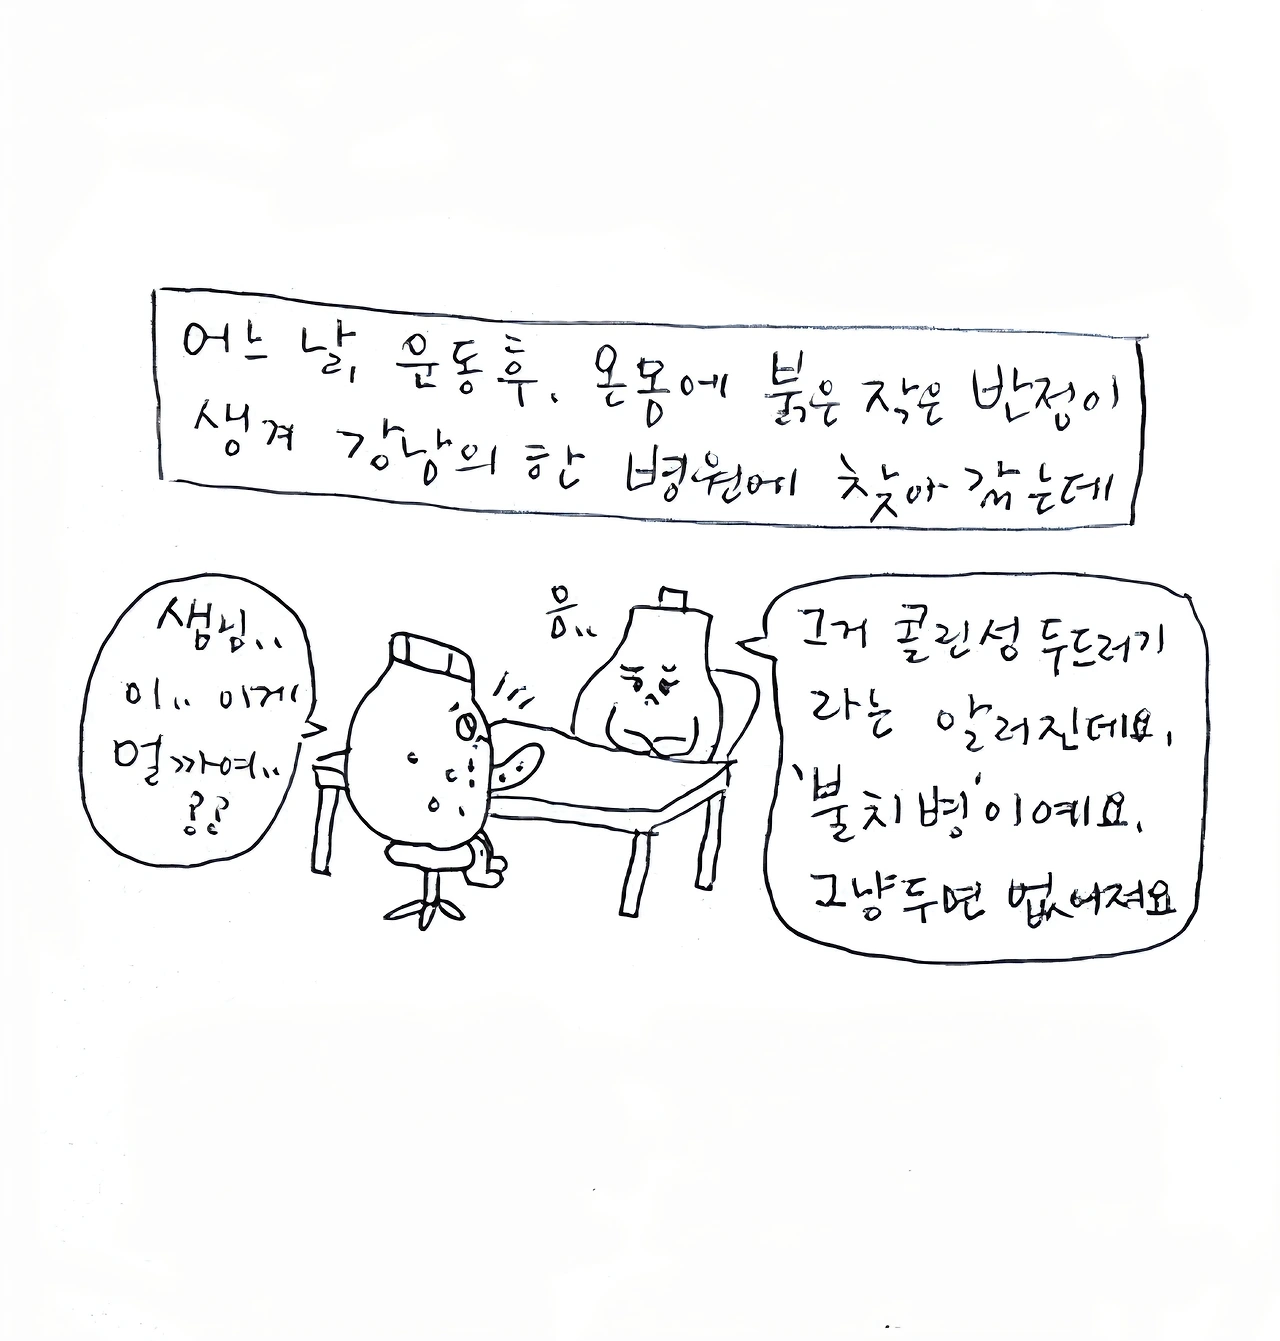 어느 날, 운동후, 온몸에 붉은 작은 반점이
생겨 강남의 한 병원에 찾아 갔는데
샘님..
이.. 이게
멀까여..
??
음..
그거 콜린성 두드러기
라는 알러진데요,
'불치병'이예요,
그냥두면 없어져요